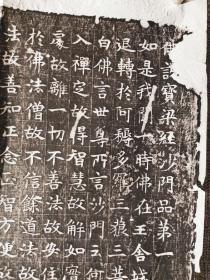 佛說寶梁經沙門品第一
如是我聞一時佛在王舍城
退轉於阿耨多羅三藐三菩
白佛言世尊所言沙門云何
入禪定故得智慧故解如實
處故離一切不善法故安住
於佛法僧故不信餘道法故
法故善知正念正智方便故